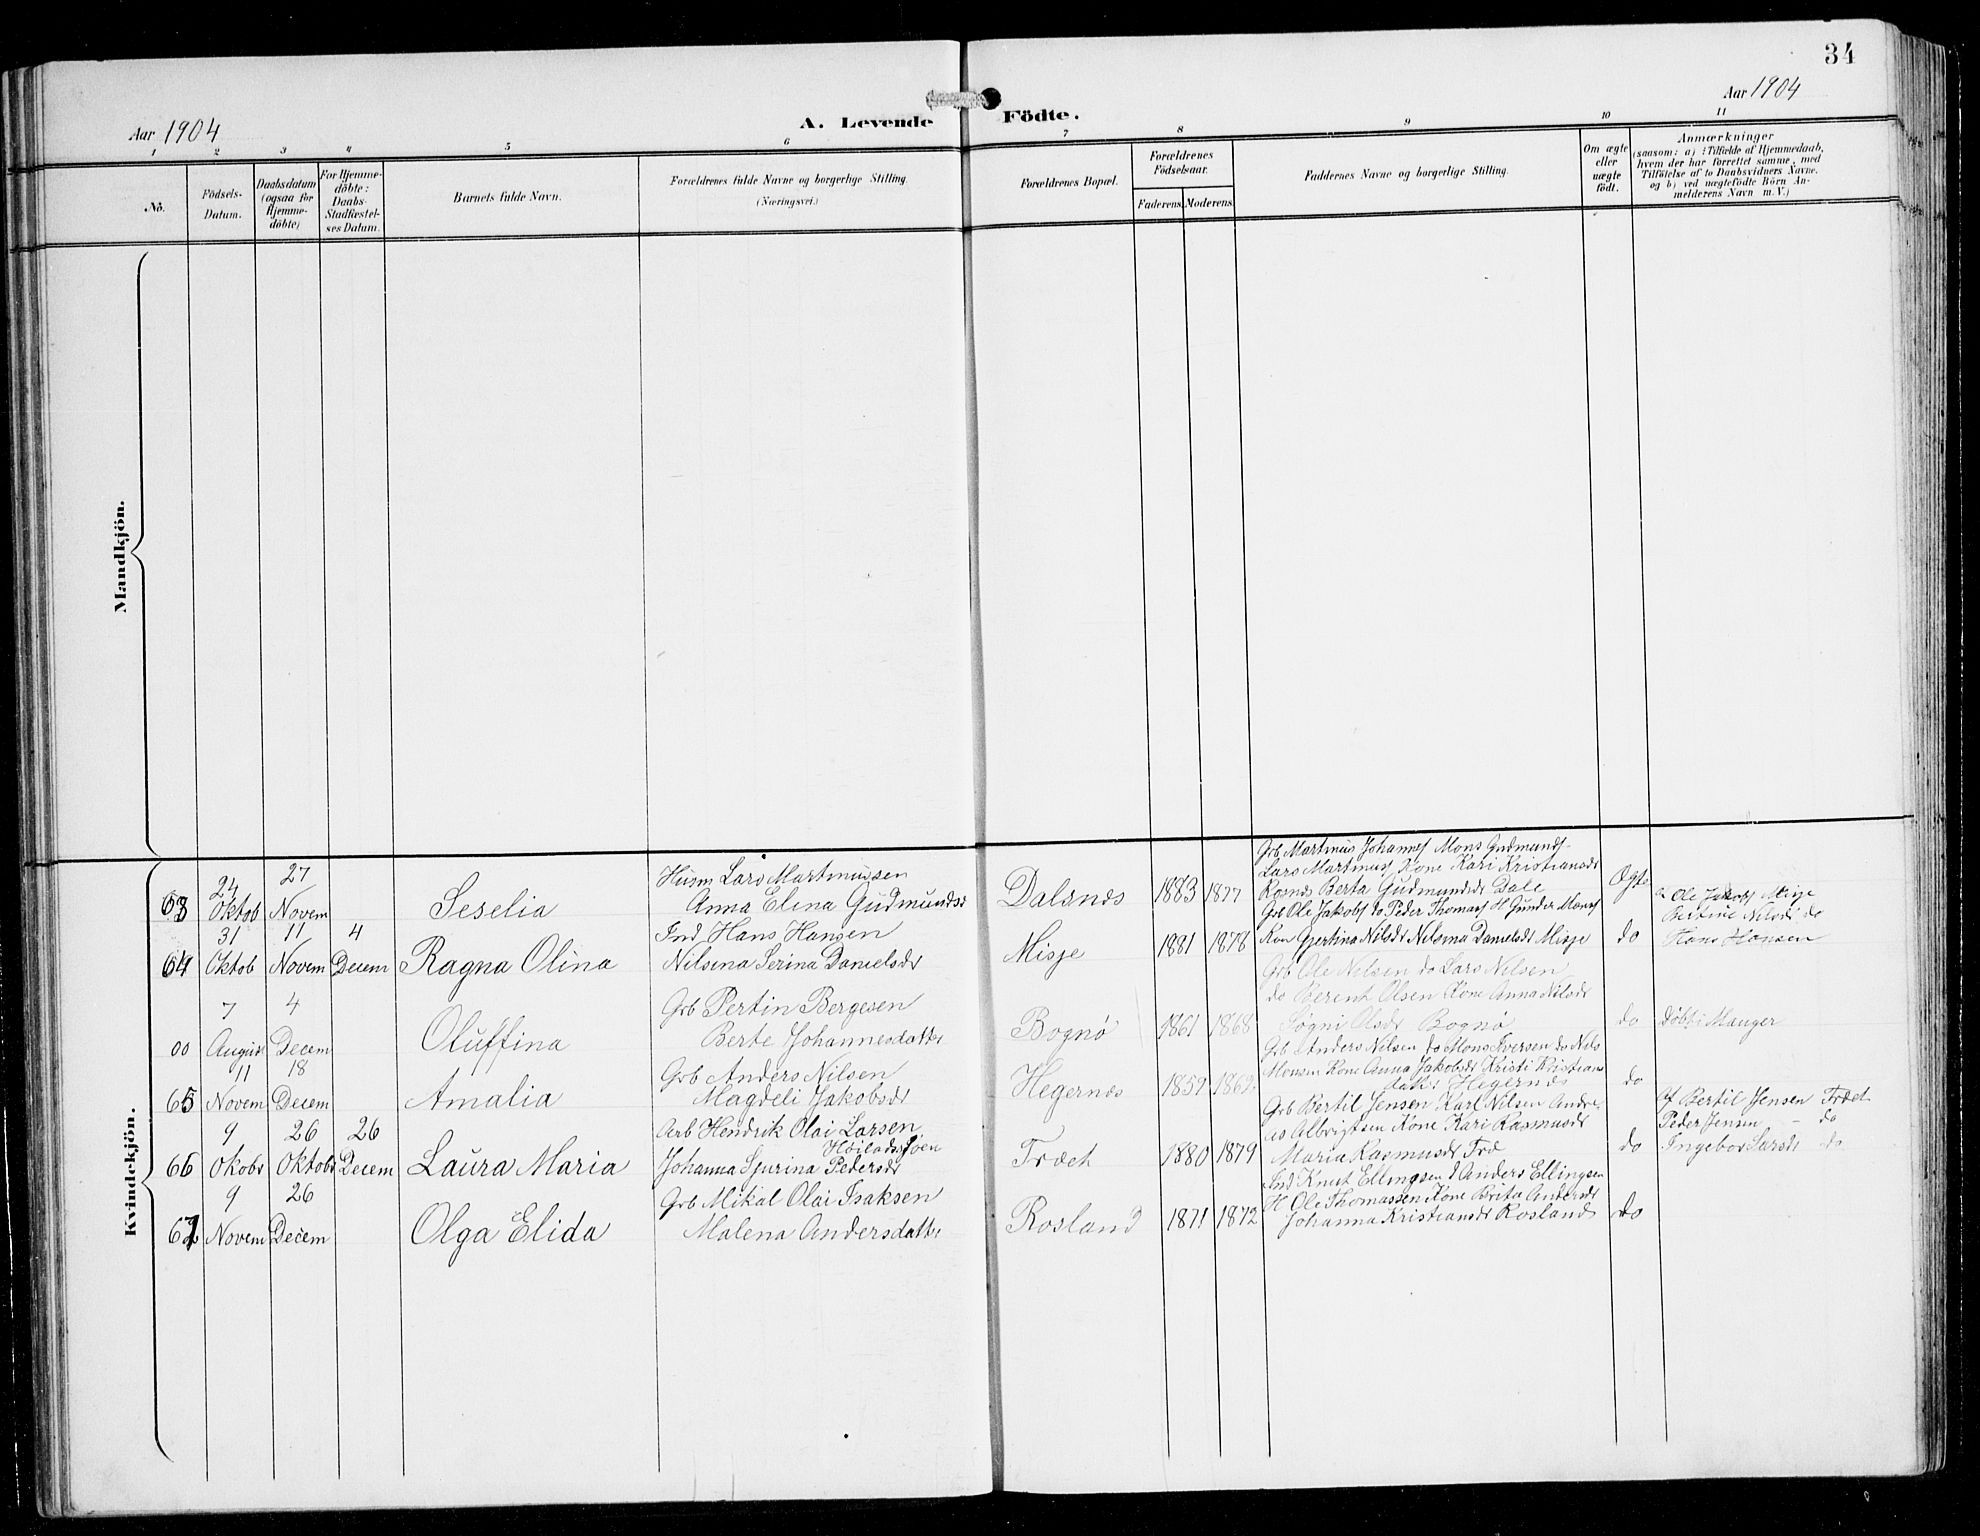 34
Aar 1904
A. Levende Födte.
Aar 1904
1 2 3 4 5 6 7 8 9 10 11
No.
Födsels-
Datum.
Daabsdatum
(ogsaa for
Hjemme-
döbte)
For Hjemme-
döbte:
Daabs-
Stadfæstel-
ses Datum.
Barnets fulde Navn.
Forældrenes fulde Navne og borgerlige Stilling.
(Næringsvei.)
Forældrenes Bopæl.
Forældrenes
Födselsaar.
Faderens. Moderens.
Faddernes Navne og borgerlige Stilling.
Om ægte
eller
uægte
födt.
Anmærkninger
(saasom: a) i Tilfælde af Hjemmedaab,
hvem der har forrettet samme, med
Tilföielse af to Daabsvidners Navne,
og b) ved uægtefödte Börn An-
melderens Navn m. V.)
Mandkjön.
Kvindekjön.
63
24
Oktob
27
Novem
Seselia
Husm Lars Martinussen
Anna Elina Gudmundsd
Dalsnes
1883 1877
Grb Martinus Johannes Mons Gudmunds-
Lars Martinus Kone Kari Kristiansdr
Rosnes Berta Gudmundsdr Dale
Ogte
64
31
Oktob
11
Novem
4
Decem
Ragna Olina
Ind Hans Hansen
Nilsina Serina Danielsdr
Misje
1881 1878
Grb Ole Jakobs do Peder Thomas H Gunder Mons
Kon Gjertina Nilsdr Nilsina Danielsdr Misje
do
Ole Jakobs Misje
Bertine Nilsdr do
Hans Hansen
00
7
August
4
Decem
Oluffina
Grb Pertin Bergesen
Berte Johannesdatter
Bognø
1861 1868
Grb Ole Nilsen do Lars Nilsen
do Berent Olsen Kone Anna Nilsdr
Søgni Olsdr Bognø
do
döbt i Manger
65
11
Novem
18
Decem
Amalia
Grb Anders Nilsen
Magdeli Jakobsdr
Hegernes
1859 1862
Grb Anders Nilsen do Mons Iversen do Nils
Monsen Kone Anna Jakobsdr Kristi Kristians
datr Hegernes
do
66
9
Okobr
26
Oktobr
26
Decem
Laura Maria
Arb Hendrik Olai Larsen
Johanna Sjurina Pedersdr
Trdet
1880 1879
Grb Bertil Jensen Karl Nilsen Andre-
as Albrigtsen Kone Kari Rasmusdr
Maria Rasmusdr Trd
do
Af Bertil Jensen Trdet
Peder Jensen - do
Ingebor Larsdr do
67
9
Novem
26
Decem
Olga Elida
Grb Mikal Olai Isaksen
Malena Andersdatter
Rosland
1871 1872
Ind Knut Ellingsen d Anders Ellingsen
H Ole Thomassen Kone Brita Andersdr
Johanna Kristiansdr Rosland
do